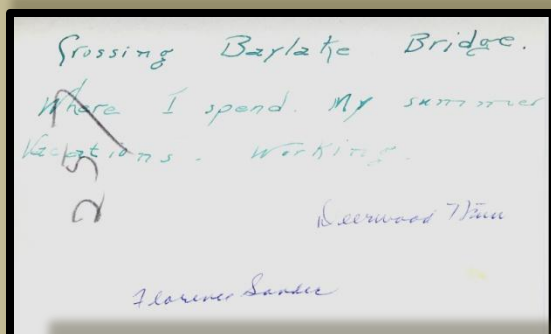 Crossing Baylake Bridge.
Where I spend. My summer
Vacations. Working.
257
Deerwood Minn
Florence Sander